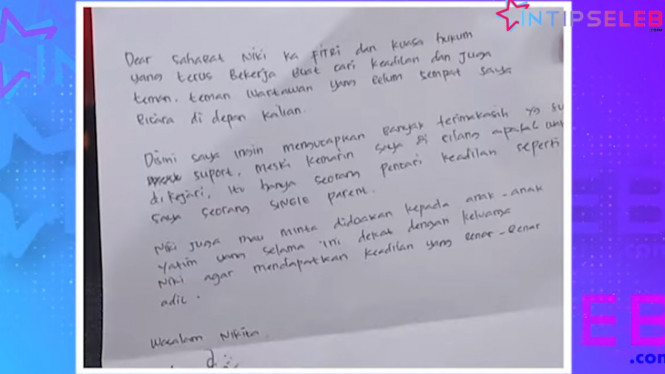 INTIPSELEB
.com
Dear Sahabat Niki Ka FITRI dan kuasa hukum
yang terus Bekerja Buat cari keadilan dan juga
teman. teman Wartawan yang Belum sempat saya
Bicara di depan kalian.
Disini saya ingin mengucapkan Banyak terimakasih yg su
suport, meski kemarin saya di Bilang
di kejari, itu hanya seorang pencari keadilan seperti
saya seorang SINGLE parent.
Niki juga mau minta didoakan kepada anak-anak
yatim yang selama ini dekat dengan keluarga
Niki agar mendapatkan keadilan yang Benar-Benar
adil.
Wasalam Nikita
EB
.com